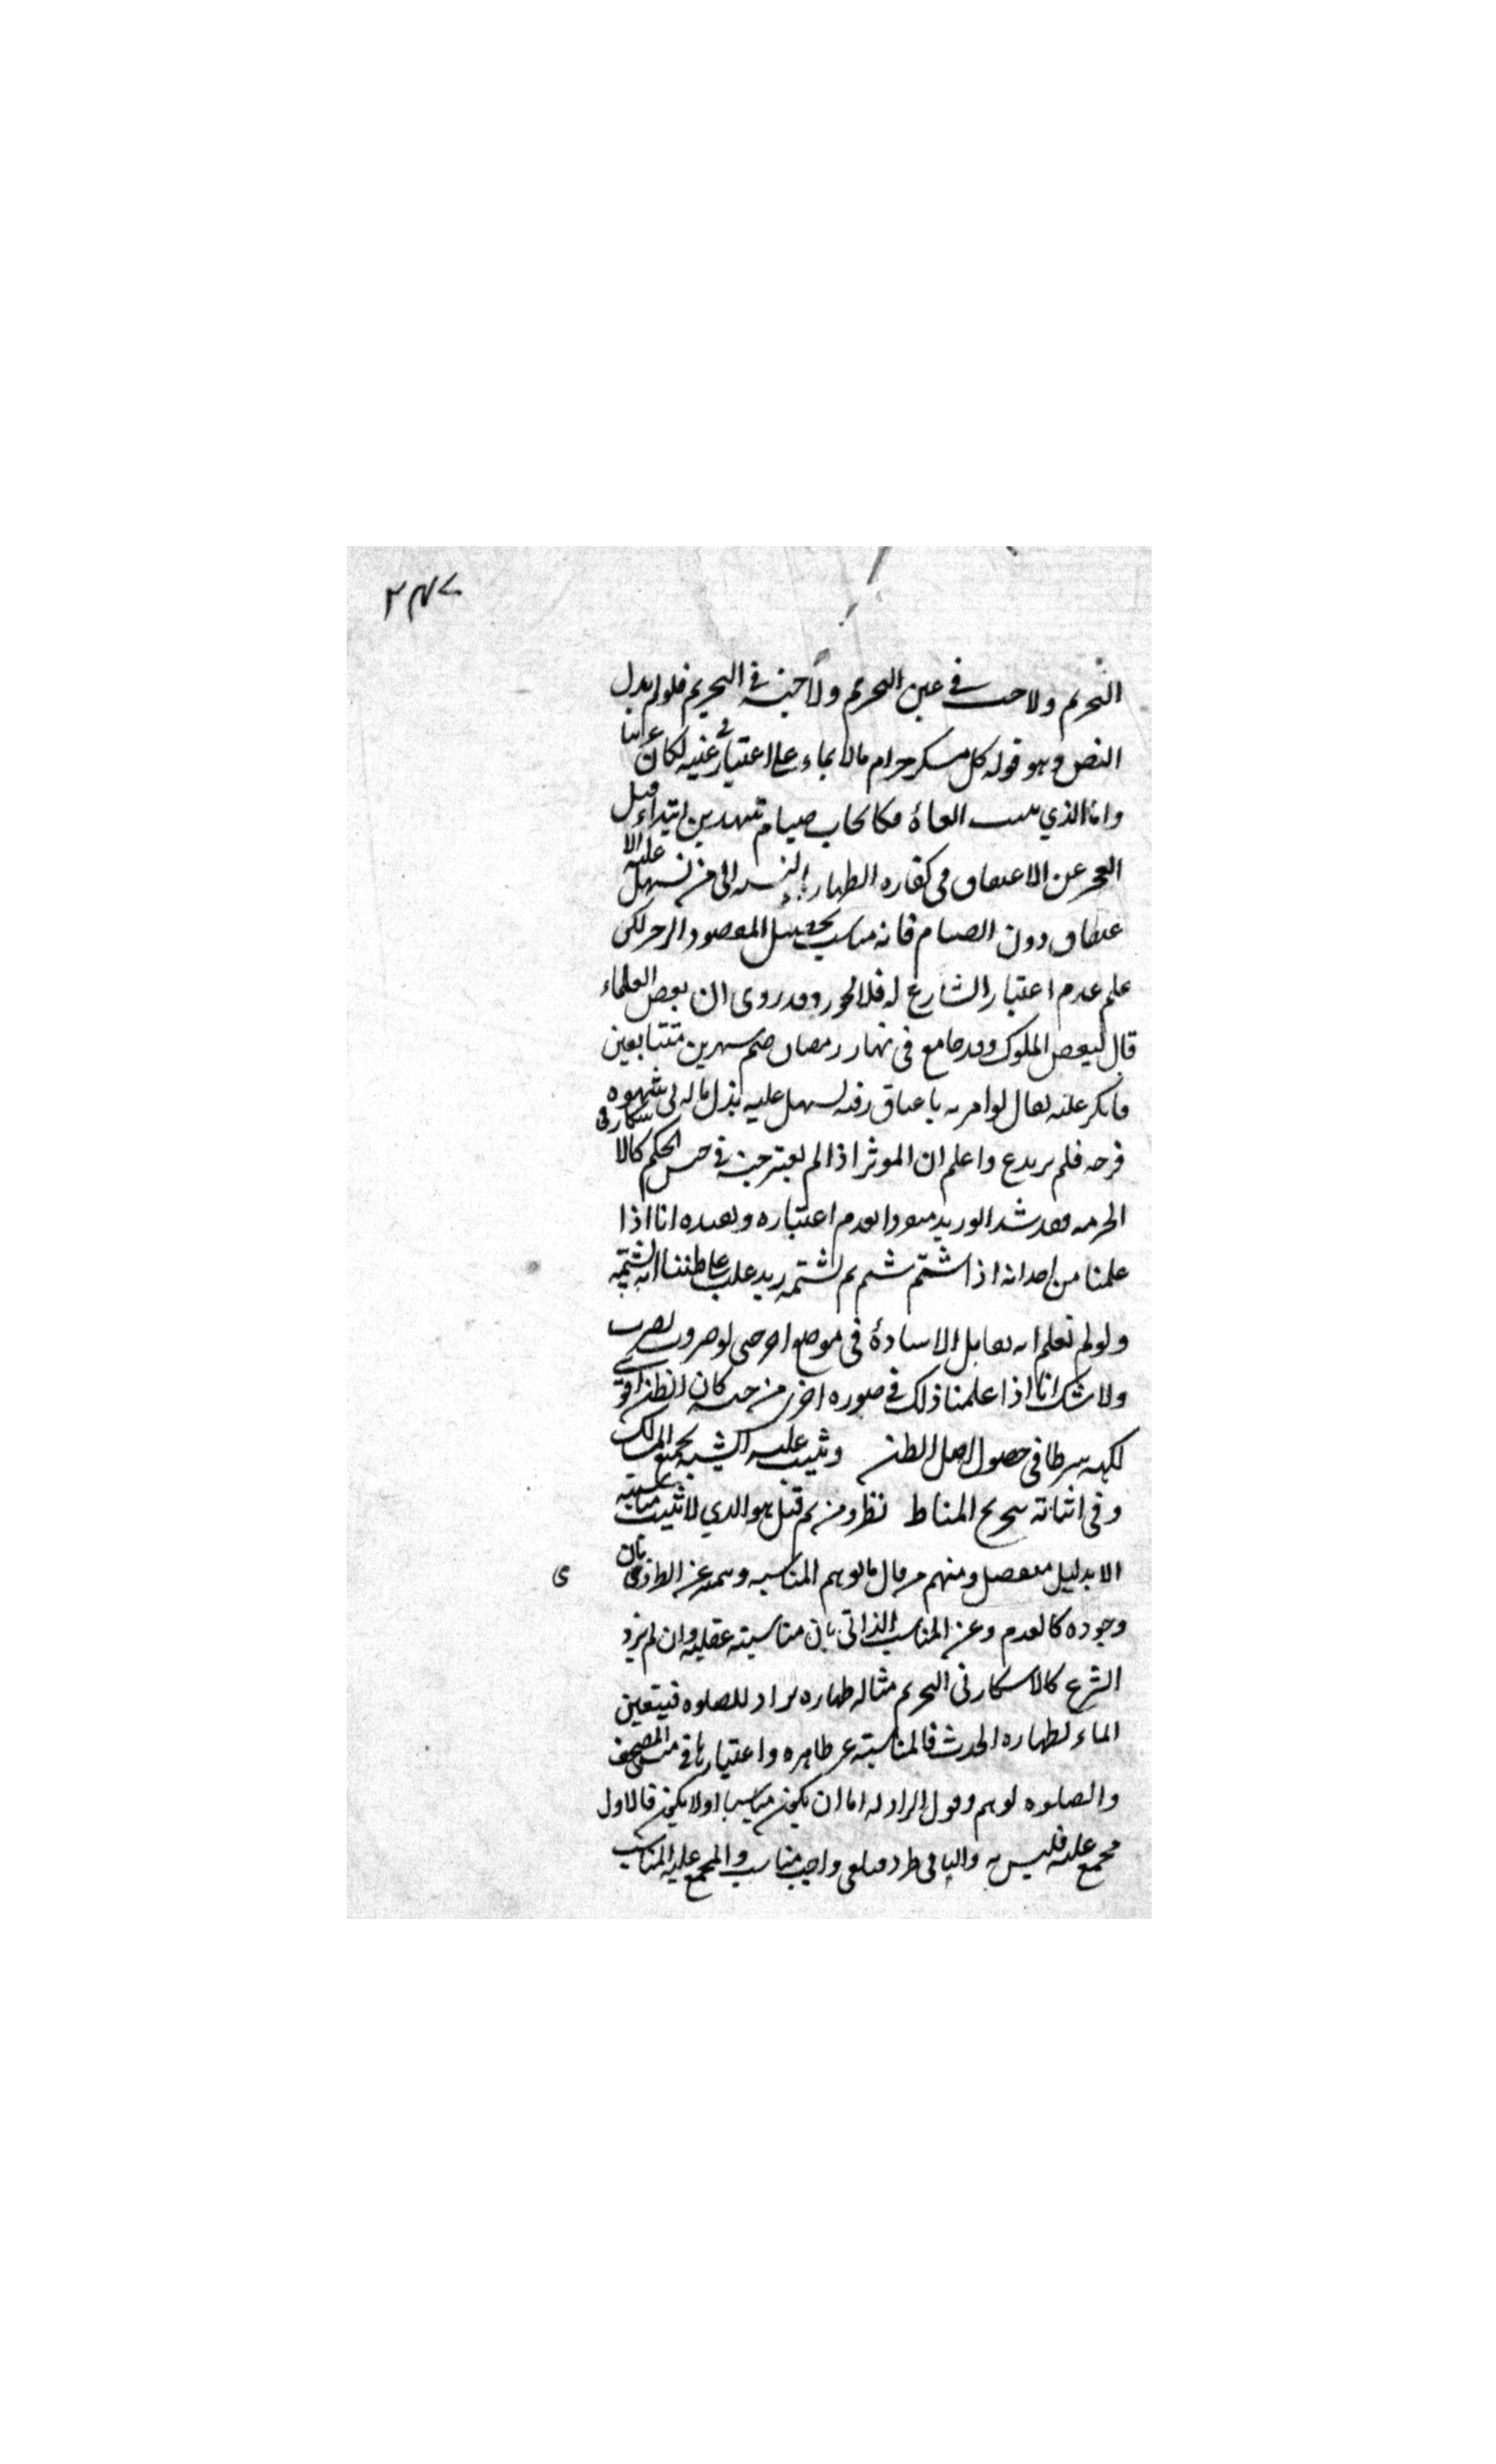 ٢٤٧
التحريم ولا جنسه في عين التحريم ولا جنسه في التحريم فلو لم يدل
النص وهو قوله كل مسكر حرام بالايماء على اعتبار عينه في لكان غريبا
واما الذي ثبت الغاؤه فكايجاب صيام شهرين ابتداء قبل
العجز عن الاعتاق في كفاره الظهار بالنسبه الى من يسهل عليه الا
عتاق دون الصيام فانه مناسب تحصيل المقصود الزجر لكن
علم عدم اعتبار الشارع له فلا يجوز وقد روى ان بعض العلماء
قال لبعض الملوك وقد جامع في نهار رمضان صم شهرين متتابعين
فانكر عليه فقال لو امرته باعتاق رقبه لسهل عليه بذل ماله في شهوه
فرجه فلم يرتدع واعلم ان الموثر اذا لم يعتبر جنسه في جنس الحكم كالاسكار في
الحرمه فقد اعتباره انا اذا
علمنا من احد انه اذا شتم شتم ثم شتمه زيد غلب على ظننا انه يشتمه
ولو لم نعلم انه يقابل الاساءة في موضع اخر حتى
ولا شك انا اذا علمنا ذلك في صوره اخرى من جنسه كان الظن اقوى
لكنه شرطا في حصول اصل الظن وتثبت عليه الشبه بجميع المسالك
وفي اثباته بتخريج المناط نظر ومن ثم قيل هو الذي لا تثبت مناسبته
الا بدليل منفصل ومنهم من قال ما يوهم المناسبه ويتميز عن الطردي بان
وجوده كالعدم وعن المناسب الذاتي بان مناسبته عقليه وان لم يرد
الشرع كالاسكار في التحريم مثاله طهاره تراد للصلوه فيتعين
الماء لطهاره الحدث فالمناسبه غير ظاهره واعتبارها في مس المصحف
والصلوه يوهم وقول الراد له اما ان يكون مناسبا او لا يكون فالاول
مجمع عليه فليس به والثاني طرد فيلغى واجيب مناسب والمجمع عليه المناسب